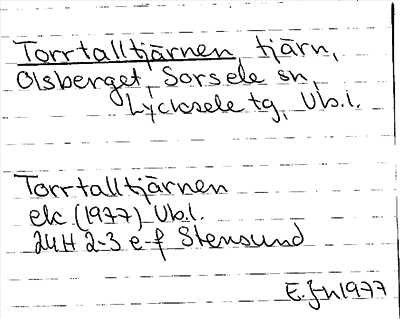 Torrtalltjärnen, tjärn,
Olsberget, Sorsele sn,
Lycksele tg, Vb.l.
Torrtalltjärnen
ek (1977) Vb.l.
24H 2-3 e-f Stensund
E. J-n 1977